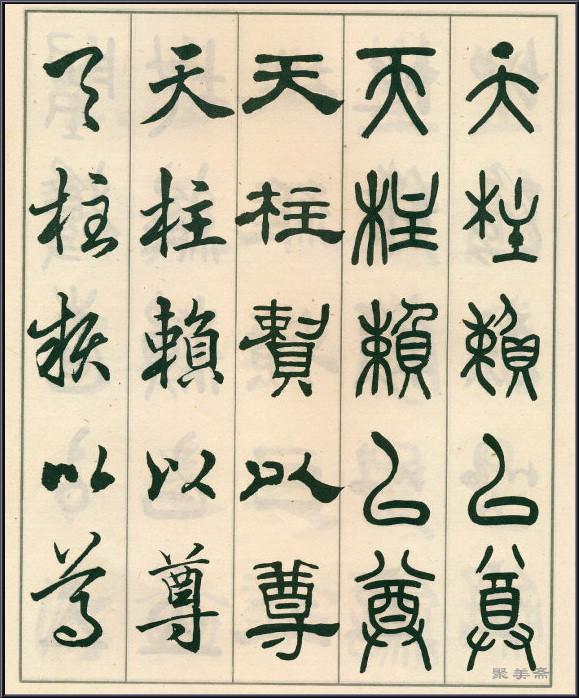 天柱賴以尊
天柱賴以尊
天柱賴以尊
天柱賴以尊
天柱賴以尊
聚美斋